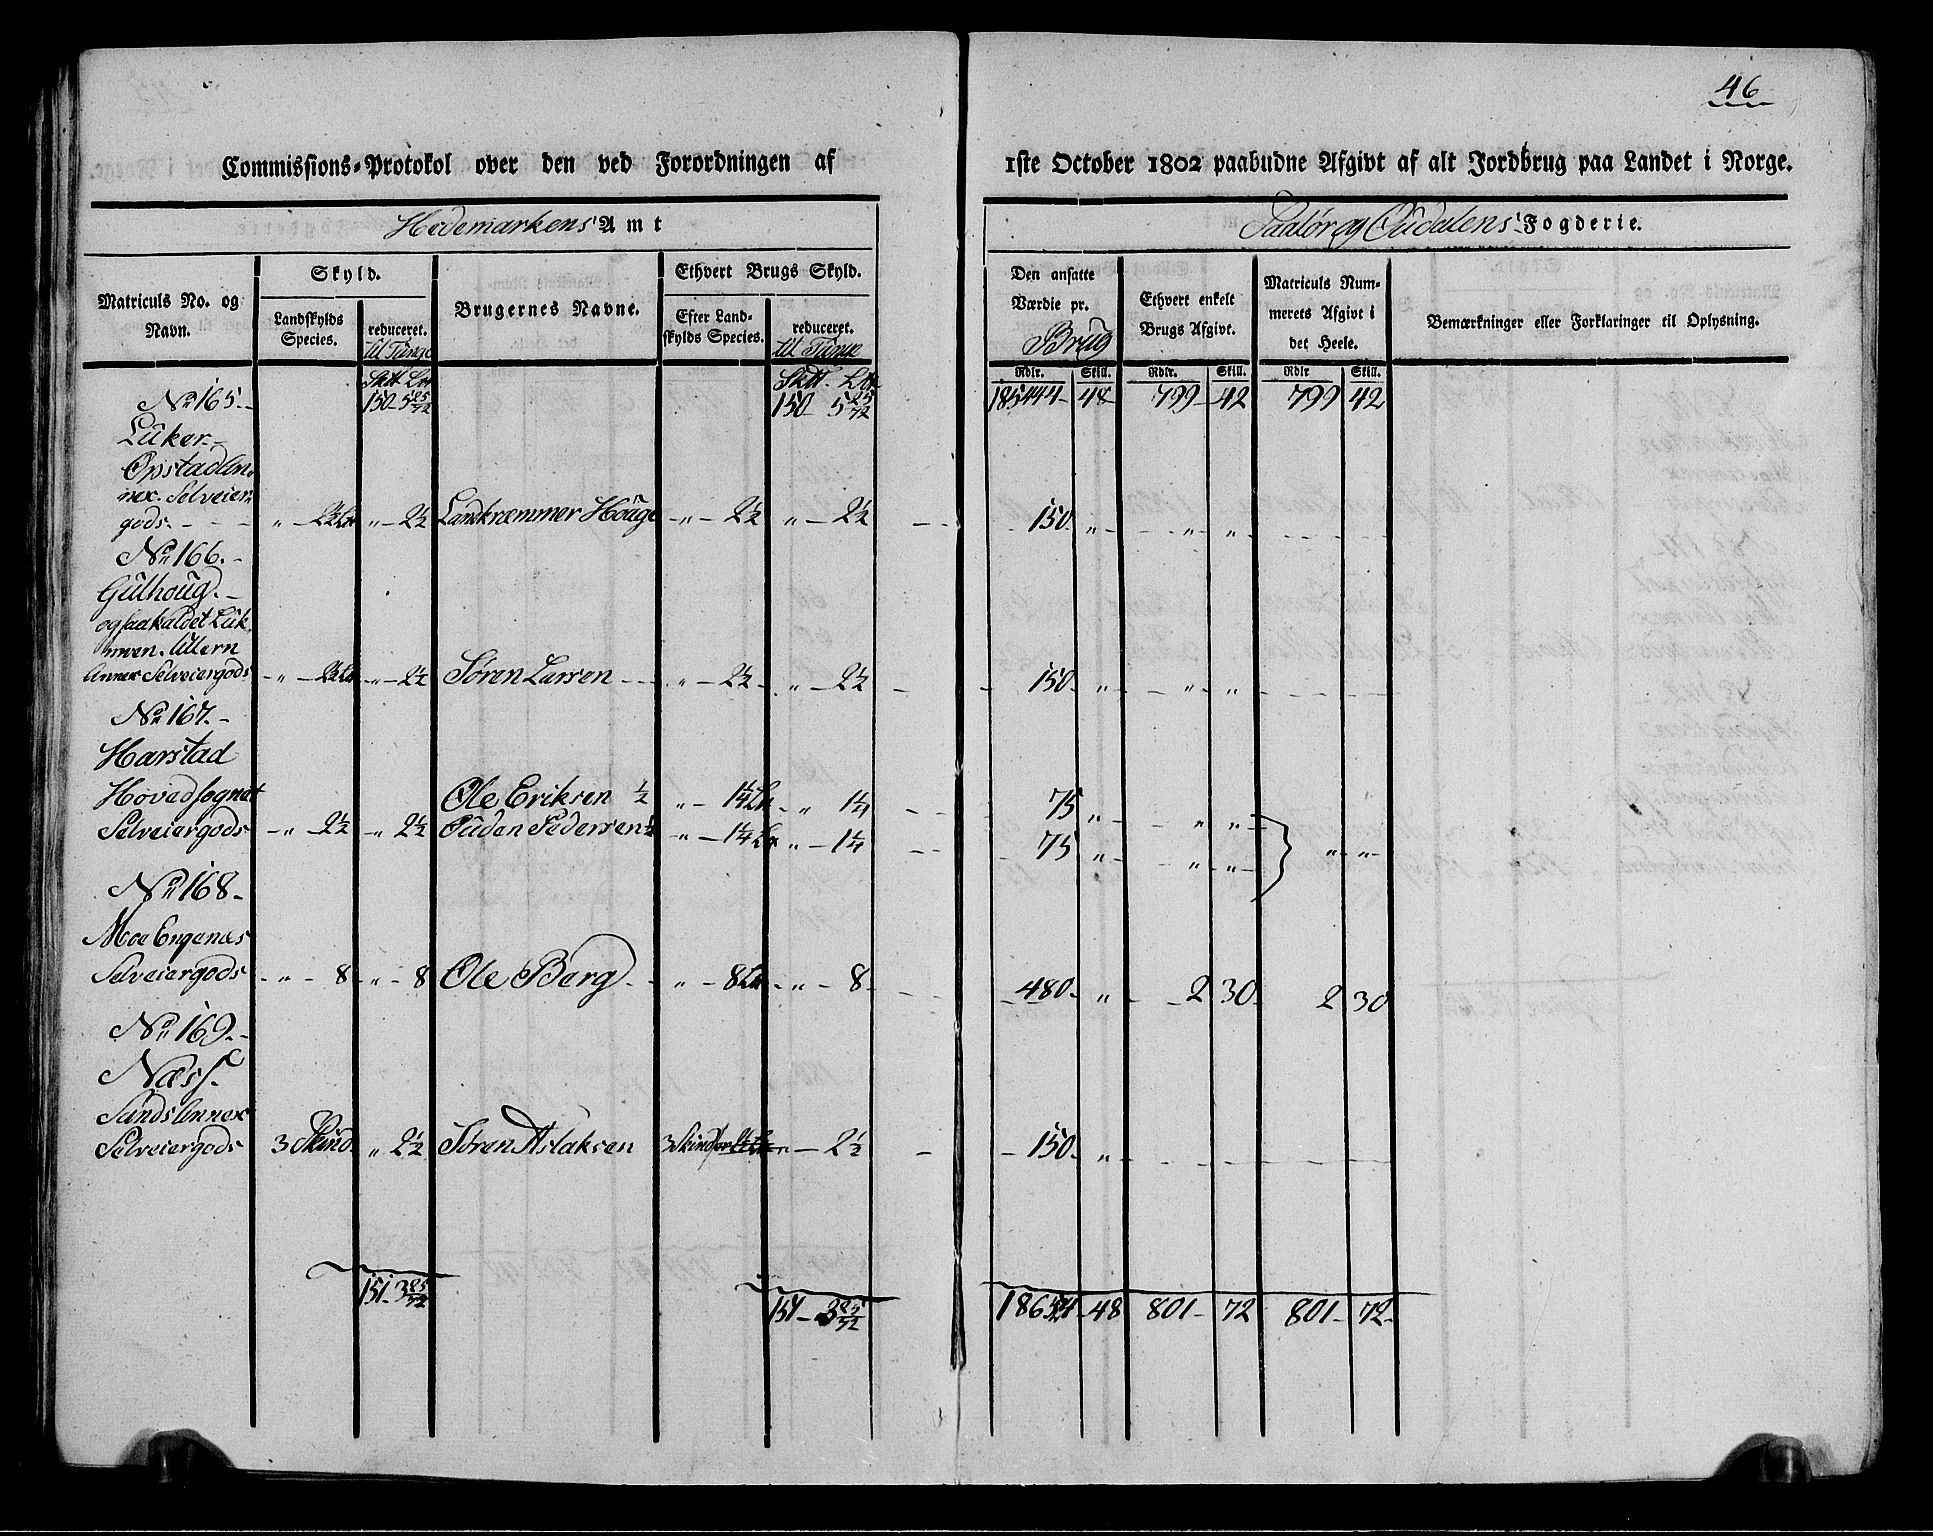 46
Commissions-Protokol over den ved Forordningen af 1ste October 1802 paabudne Afgivt af alt Jordbrug paa Landet i Norge.
Hedemarkens Amt
Soløer og Oudalens Fogderie.
Matriculs No. og Navn.
Skyld.
Landskylds Species.
reduceret. til Tunge
Brugernes Navne.
Ethvert Brugs Skyld.
Efter Landskylds Species.
reduceret. til Tunge
Den ansatte Værdie pr. Brug
Ethvert enkelt Brugs Afgivt.
Matriculs Nummerets Afgivt i det Heele.
Bemærkninger eller Forklaringer til Oplysning.
Rdlr. Skill. Rdlr Skill. Rdlr Skill.
No 165. 150 5 25/72 150 5 25/72 185444 48 799 42 799 42
Luker
Opstad An-
nex. Selveier
gods. " 2½ " 2½ Landkræmmer Houge " 2½ " 2½ 150 " " "
No 166.
Gulhoug.
og saakaldet Luk
moen. Ullern
Annex Selveiergods " 2½ " 2½ Søren Larsen " 2½ " 2½ 150 " " "
No 167.
Harstad
Hovedsognet Ole Eriksen ½ " 1¼ " 1¼ 75 " " "
Selveiergods " 2½ " 2½ Ouden Pedersen ½ " 1¼ " 1¼ 75 " " " " "
No 168
Moe Engenæs
Selveiergods " 8 " 8 Ole Berg " 8 " 8 480 " 2 30 2 30
No 169.
Næss.
Sands Annex
Selveiergods 3 Skind " 2½ Søren Aslaksen 3 Skind 2½ 150 "
151 3 25/72 151 3 25/72 48 801 72 801 72